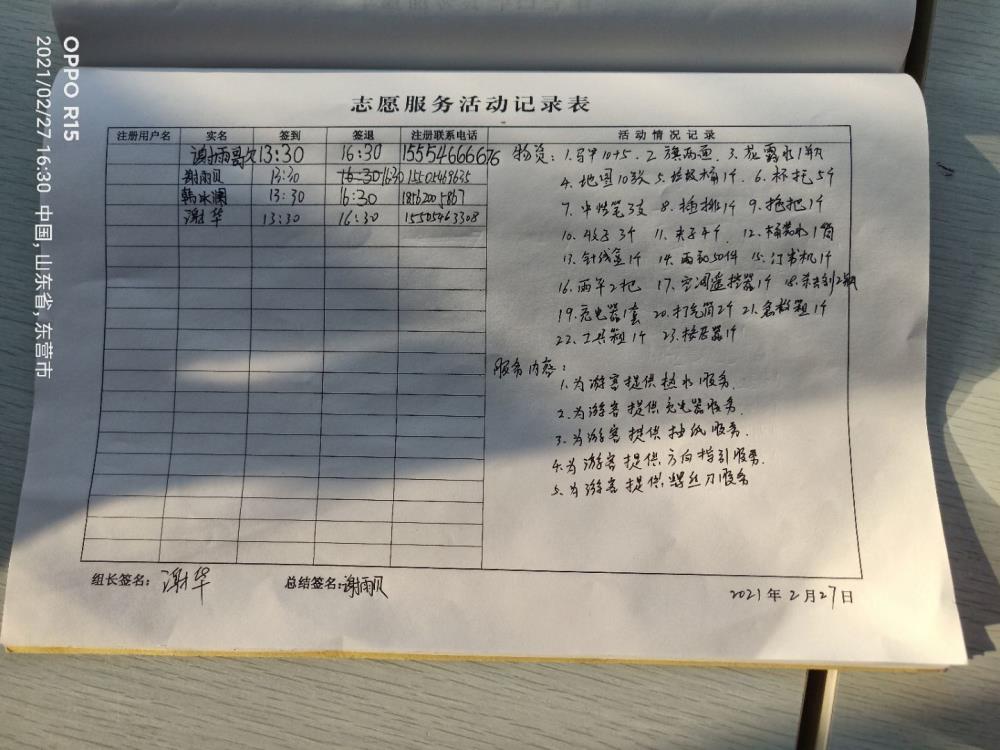 志愿服务活动记录表
注册用户名 实名 签到 签退 注册联系电话 活动情况记录
谢雨 13:30 16:30 15554666676
谢雨贝 13:30 16:30 16:30 15505469635
韩冰澜 13:30 16:30 18562005867
谢华 13:30 16:30 15505463308
物资：1.马甲10+5. 2.旗两面 3.花露水1瓶
4.地图10张 5.垃圾桶1个 6.杯托5个
7.中性笔3支 8.插排1个 9.拖把1个
10. 3个 11.夹子4个 12.桶装水1筒
13.针线盒1个 14.雨衣50件 15.订书机1个
16.雨伞2把 17.空调遥控器1个 18. 2瓶
19.充电器1套 20.打气筒2个 21.急救箱1个
22.工具箱1个 23. 1个
服务内容：
1.为游客提供热水服务.
2.为游客提供充电器服务.
3.为游客提供抽纸服务.
4.为游客提供方向指引服务.
5.为游客提供螺丝刀服务
组长签名：谢华 总结签名：谢雨贝
2021年2月27日
OPPO R15
2021/02/27 16:30 中国, 山东省, 东营市